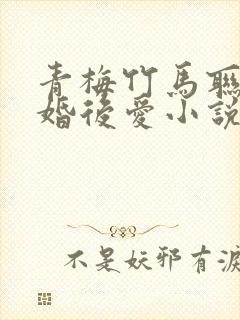 青梅竹馬聯
婚後愛小說
不是妖邪有淚